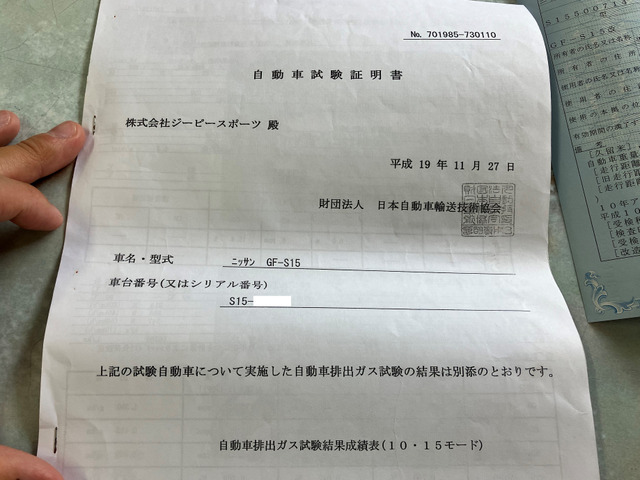 No. 701985-730110
自動車試験証明書
株式会社ジーピースポーツ 殿
平成 19 年 11 月 27 日
財団法人 日本自動車輸送技術協会
車名・型式 ニッサン GF-S15
車台番号(又はシリアル番号)
S15-
上記の試験自動車について実施した自動車排出ガス試験の結果は別添のとおりです。
自動車排出ガス試験結果成績表(10・15モード)
S15500714
型
GF-S15改
所有者の氏名又は名称
所有者の住
使用者の氏名又は名称
使用者の住
使用の本拠の位
有効期間の満了す
備考
[久留米]
自動車重量
[走行距離
[旧走行距
[走行距離
10年ア
平成10
[受検
[検査
[受検
[改造